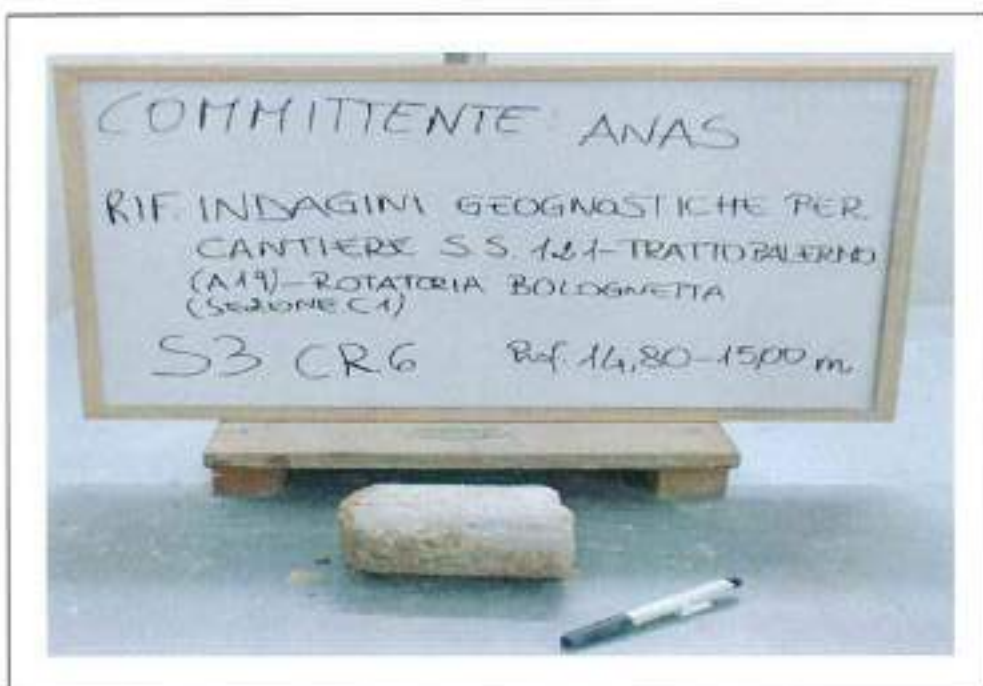 COMMITTENTE: ANAS
RIF. INDAGINI GEOGNOSTICHE PER
CANTIERE S.S. 121-TRATTO PALERMO
(A19)-ROTATORIA BOLOGNETTA
(SEZIONE C1)
S3 CR6 Prof. 14,80-15,00 m.